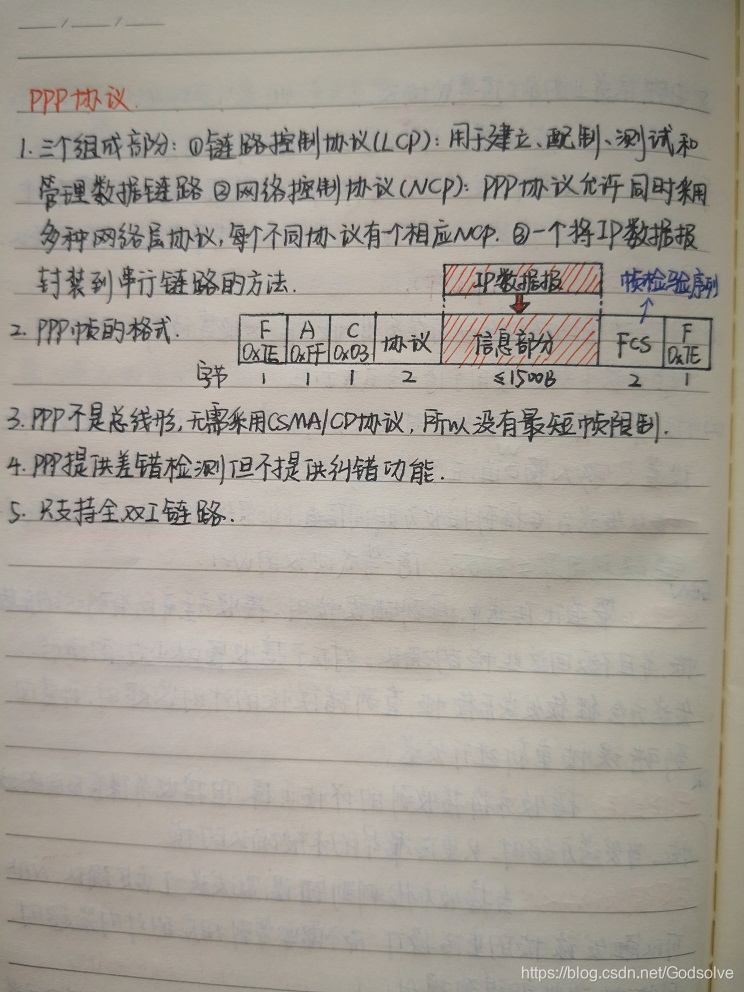 PPP协议.
1. 三个组成部分: ①链路控制协议(LCP): 用于建立、配制、测试和
管理数据链路 ②网络控制协议(NCP): PPP协议允许同时采用
多种网络层协议, 每个不同协议有一个相应NCP. ③一个将IP数据报
封装到串行链路的方法.
IP数据报
帧检验序列
2. PPP帧的格式.
F A C 协议 信息部分 FCS F
0x7E 0xFF 0x03 0x7E
字节 1 1 1 2 ≤1500B 2 1
3. PPP不是总线形, 无需采用CSMA/CD协议, 所以没有最短帧限制.
4. PPP提供差错检测但不提供纠错功能.
5. 只支持全双工链路.
https://blog.csdn.net/Godsolve